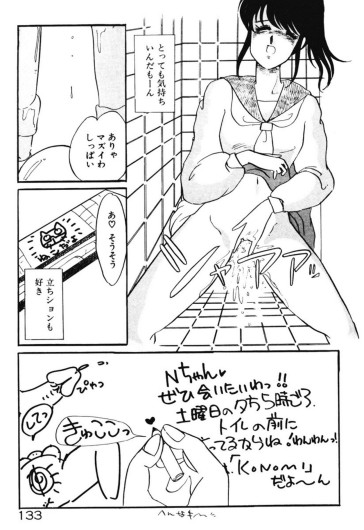 とっても気持ち
いんだもーん
ありゃ
マズイわ
しっぱい
シャァァァ
あ♡そうそう
立ちションも
好き
Nちゃん♡
ぜひ会いたいわっ!!
土曜日の夕ち時ごろ、
トイレの前に
ってるからね
わんわん!
「KONOMI」
だよ〜ん
ぴゃっ
してっ
きゅここっ
133